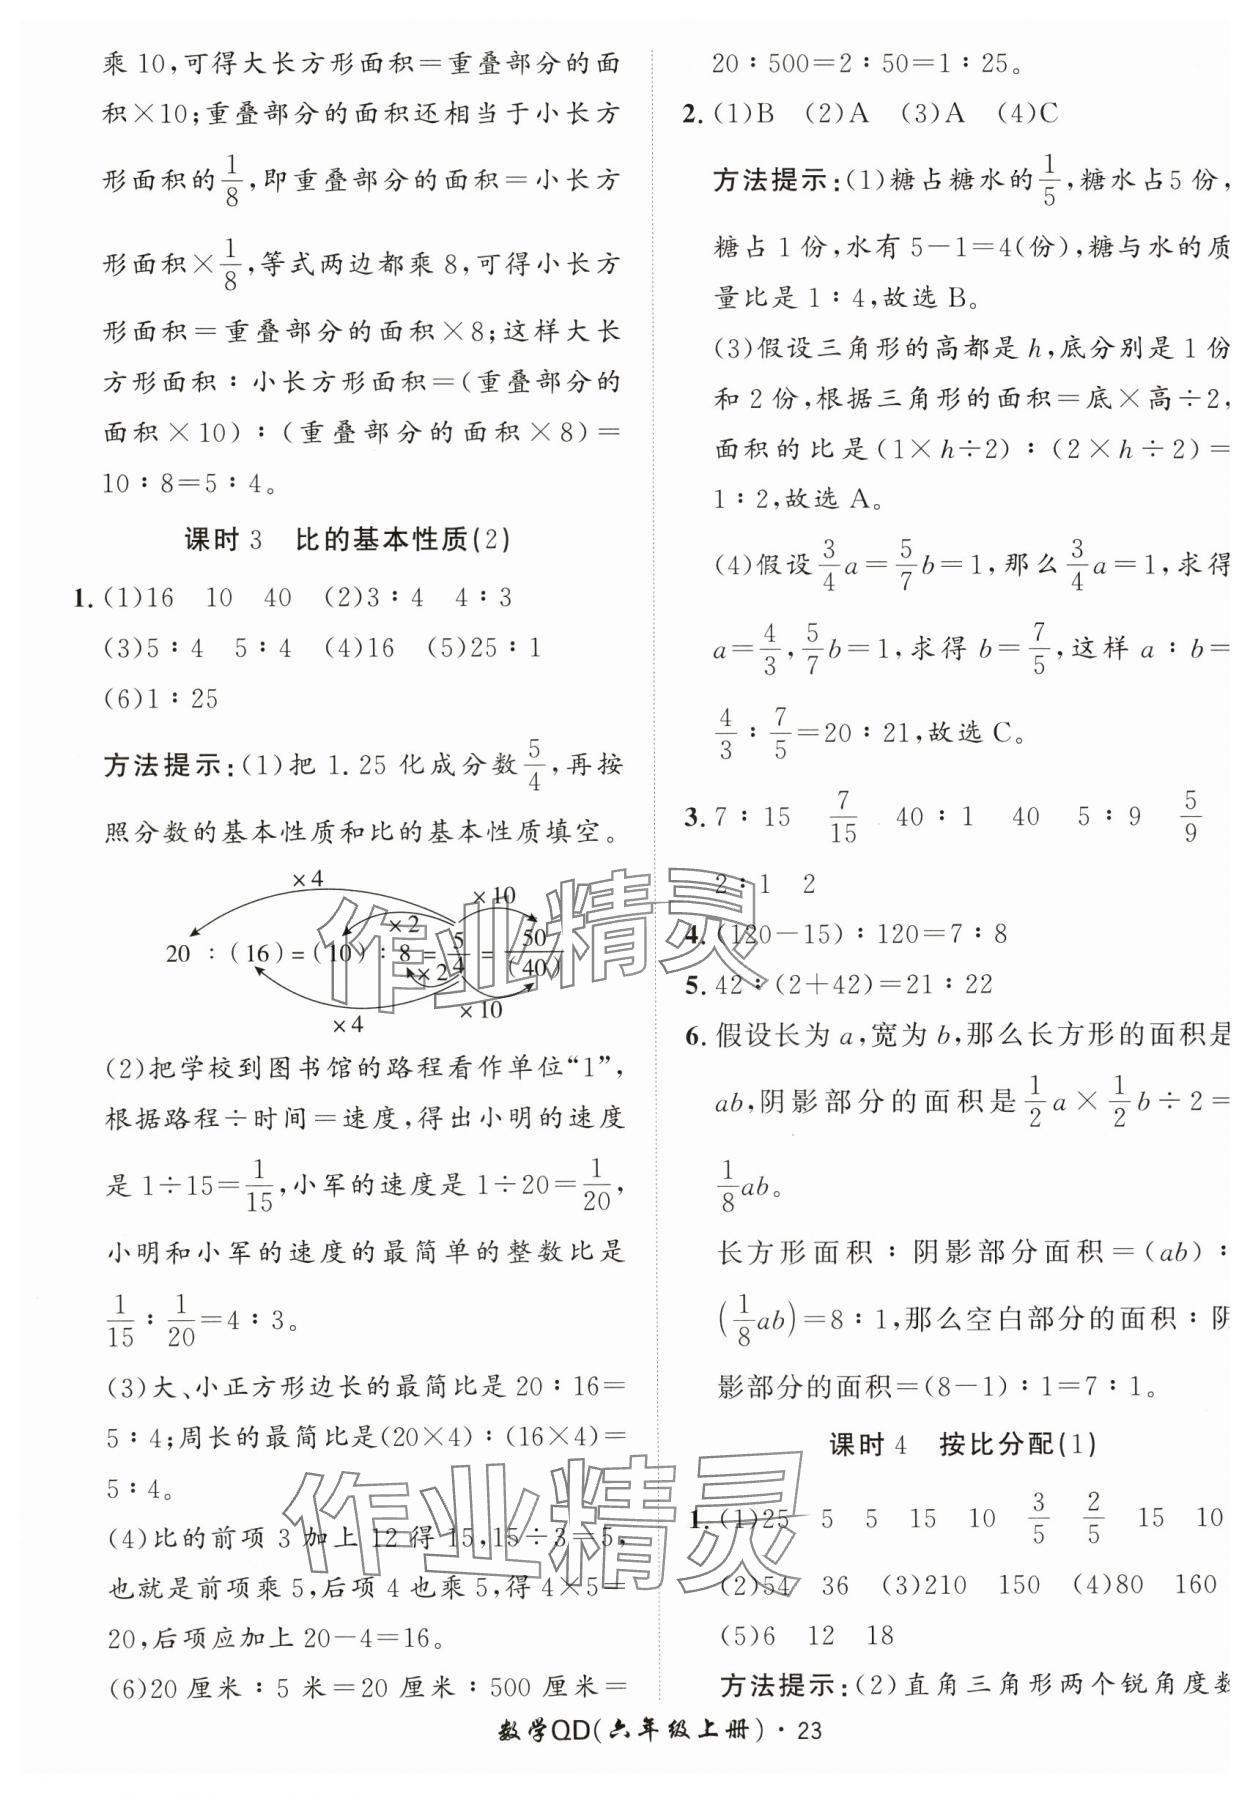 乘10,可得大长方形面积=重叠部分的面
积×10;重叠部分的面积还相当于小长方
形面积的1/8,即重叠部分的面积=小长方
形面积×1/8,等式两边都乘8,可得小长方
形面积=重叠部分的面积×8;这样大长
方形面积∶小长方形面积=(重叠部分的
面积×10)∶(重叠部分的面积×8)=
10∶8=5∶4。
课时3 比的基本性质(2)
1. (1)16 10 40 (2)3∶4 4∶3
(3)5∶4 5∶4 (4)16 (5)25∶1
(6)1∶25
方法提示:(1)把1.25化成分数5/4,再按
照分数的基本性质和比的基本性质填空。
×4 ×10
×2
20∶(16)=(10)∶8=5/4=50/(40)
×2
×4 ×10
(2)把学校到图书馆的路程看作单位“1”,
根据路程÷时间=速度,得出小明的速度
是1÷15=1/15,小军的速度是1÷20=1/20,
小明和小军的速度的最简单的整数比是
1/15∶1/20=4∶3。
(3)大、小正方形边长的最简比是20∶16=
5∶4;周长的最简比是(20×4)∶(16×4)=
5∶4。
(4)比的前项3加上12得15,15÷3=5,
也就是前项乘5,后项4也乘5,得4×5=
20,后项应加上20-4=16。
(6)20厘米∶5米=20厘米∶500厘米=
20∶500=2∶50=1∶25。
2. (1)B (2)A (3)A (4)C
方法提示:(1)糖占糖水的1/5,糖水占5份,
糖占1份,水有5-1=4(份),糖与水的质
量比是1∶4,故选B。
(3)假设三角形的高都是h,底分别是1份
和2份,根据三角形的面积=底×高÷2,
面积的比是(1×h÷2)∶(2×h÷2)=
1∶2,故选A。
(4)假设3/4a=5/7b=1,那么3/4a=1,求得
a=4/3,5/7b=1,求得b=7/5,这样a∶b=
4/3∶7/5=20∶21,故选C。
3. 7∶15 7/15 40∶1 40 5∶9 5/9
2∶1 2
4. (120-15)∶120=7∶8
5. 42∶(2+42)=21∶22
6. 假设长为a,宽为b,那么长方形的面积是
ab,阴影部分的面积是1/2a×1/2b÷2=
1/8ab。
长方形面积∶阴影部分面积=(ab)∶
(1/8ab)=8∶1,那么空白部分的面积∶阴
影部分的面积=(8-1)∶1=7∶1。
课时4 按比分配(1)
1. (1)25 5 5 15 10 3/5 2/5 15 10
(2)54 36 (3)210 150 (4)80 160
(5)6 12 18
方法提示:(2)直角三角形两个锐角度数
数学QD(六年级上册)·23
作业精灵
作业精灵